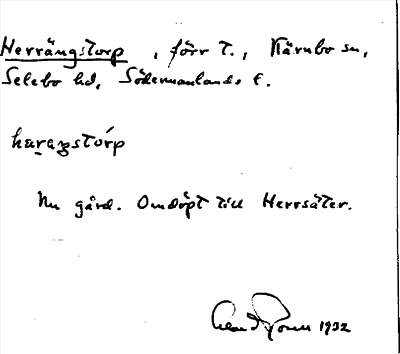 Herrängstorp, förr t., Kärnbo sn,
Selebo hd, Södermanlands l.
haraŋstórp
Nu gård. Omdöpt till Herrsäter.
1932